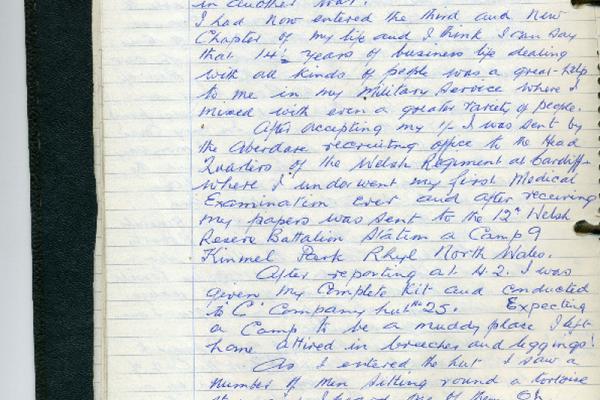 in another war.
I had now entered the third and New
Chapter of my life and I think I can say
that 14½ years of business life dealing
with all kinds of people was a great help
to me in my Military Service where I
mixed with even a greater variety of people.
After accepting my 1/- I was sent by
the Aberdare recruiting office to the Head
Quarters of the Welsh Regiment at Cardiff
where I underwent my first Medical
Examination ever and after receiving
my papers was sent to the 12th Welsh
Reserve Battalion Station a Camp 9
Kinmel Park Rhyl North Wales.
After reporting at H.2. I was
given my complete Kit and conducted
to "C" Company hut No 25. Expecting
a Camp to be a muddy place I left
home attired in breeches and leggings!
As I entered the hut I saw a
number of men sitting round a tortoise
I heard one of them